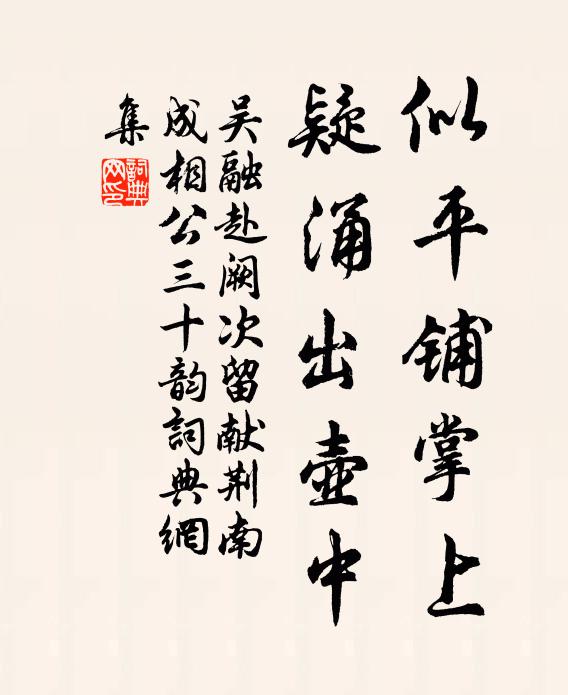 似平铺掌上
疑涌出壶中
吴融赴阙次留献荆南
成相公三十韵詞典網
集
詞典
网印